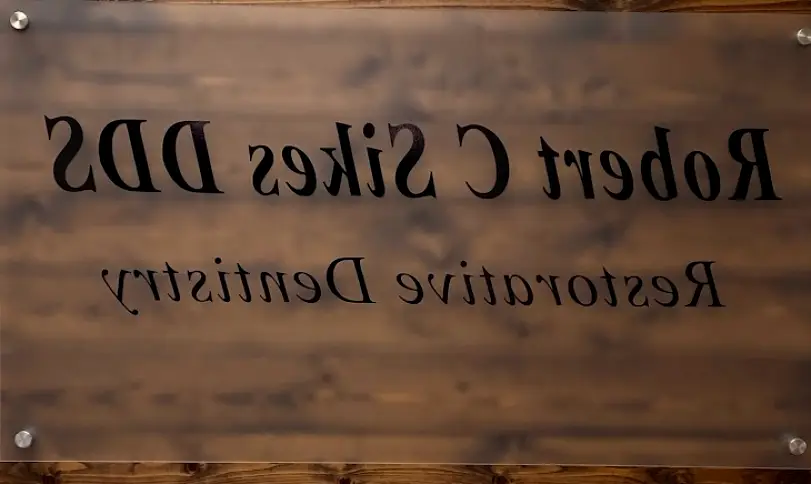 Robert C Sikes DDS
Restorative Dentistry